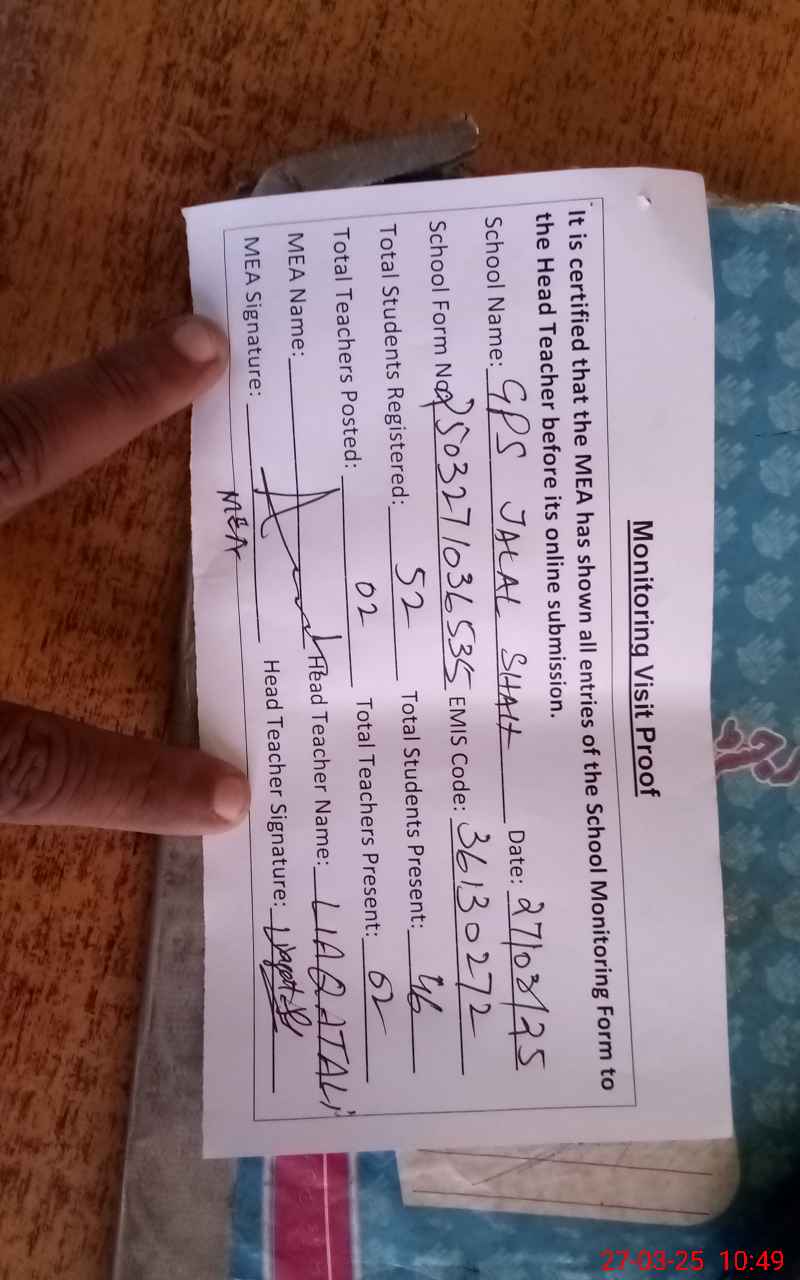 Monitoring Visit Proof
It is certified that the MEA has shown all entries of the School Monitoring Form to
the Head Teacher before its online submission.
School Name: GPS JALAL SHAH Date: 27/03/25
School Form No: 2503271036535 EMIS Code: 36130272
Total Students Registered: 52 Total Students Present: 46
Total Teachers Posted: 02 Total Teachers Present: 02
MEA Name: Head Teacher Name: LIAQAT ALI
MEA Signature: Head Teacher Signature:
MEA
27-03-25 10:49